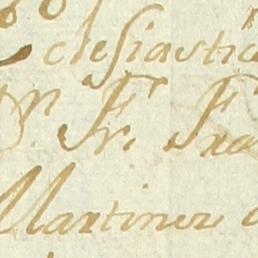 Eclesiastic
Fr. Fra
Martinez